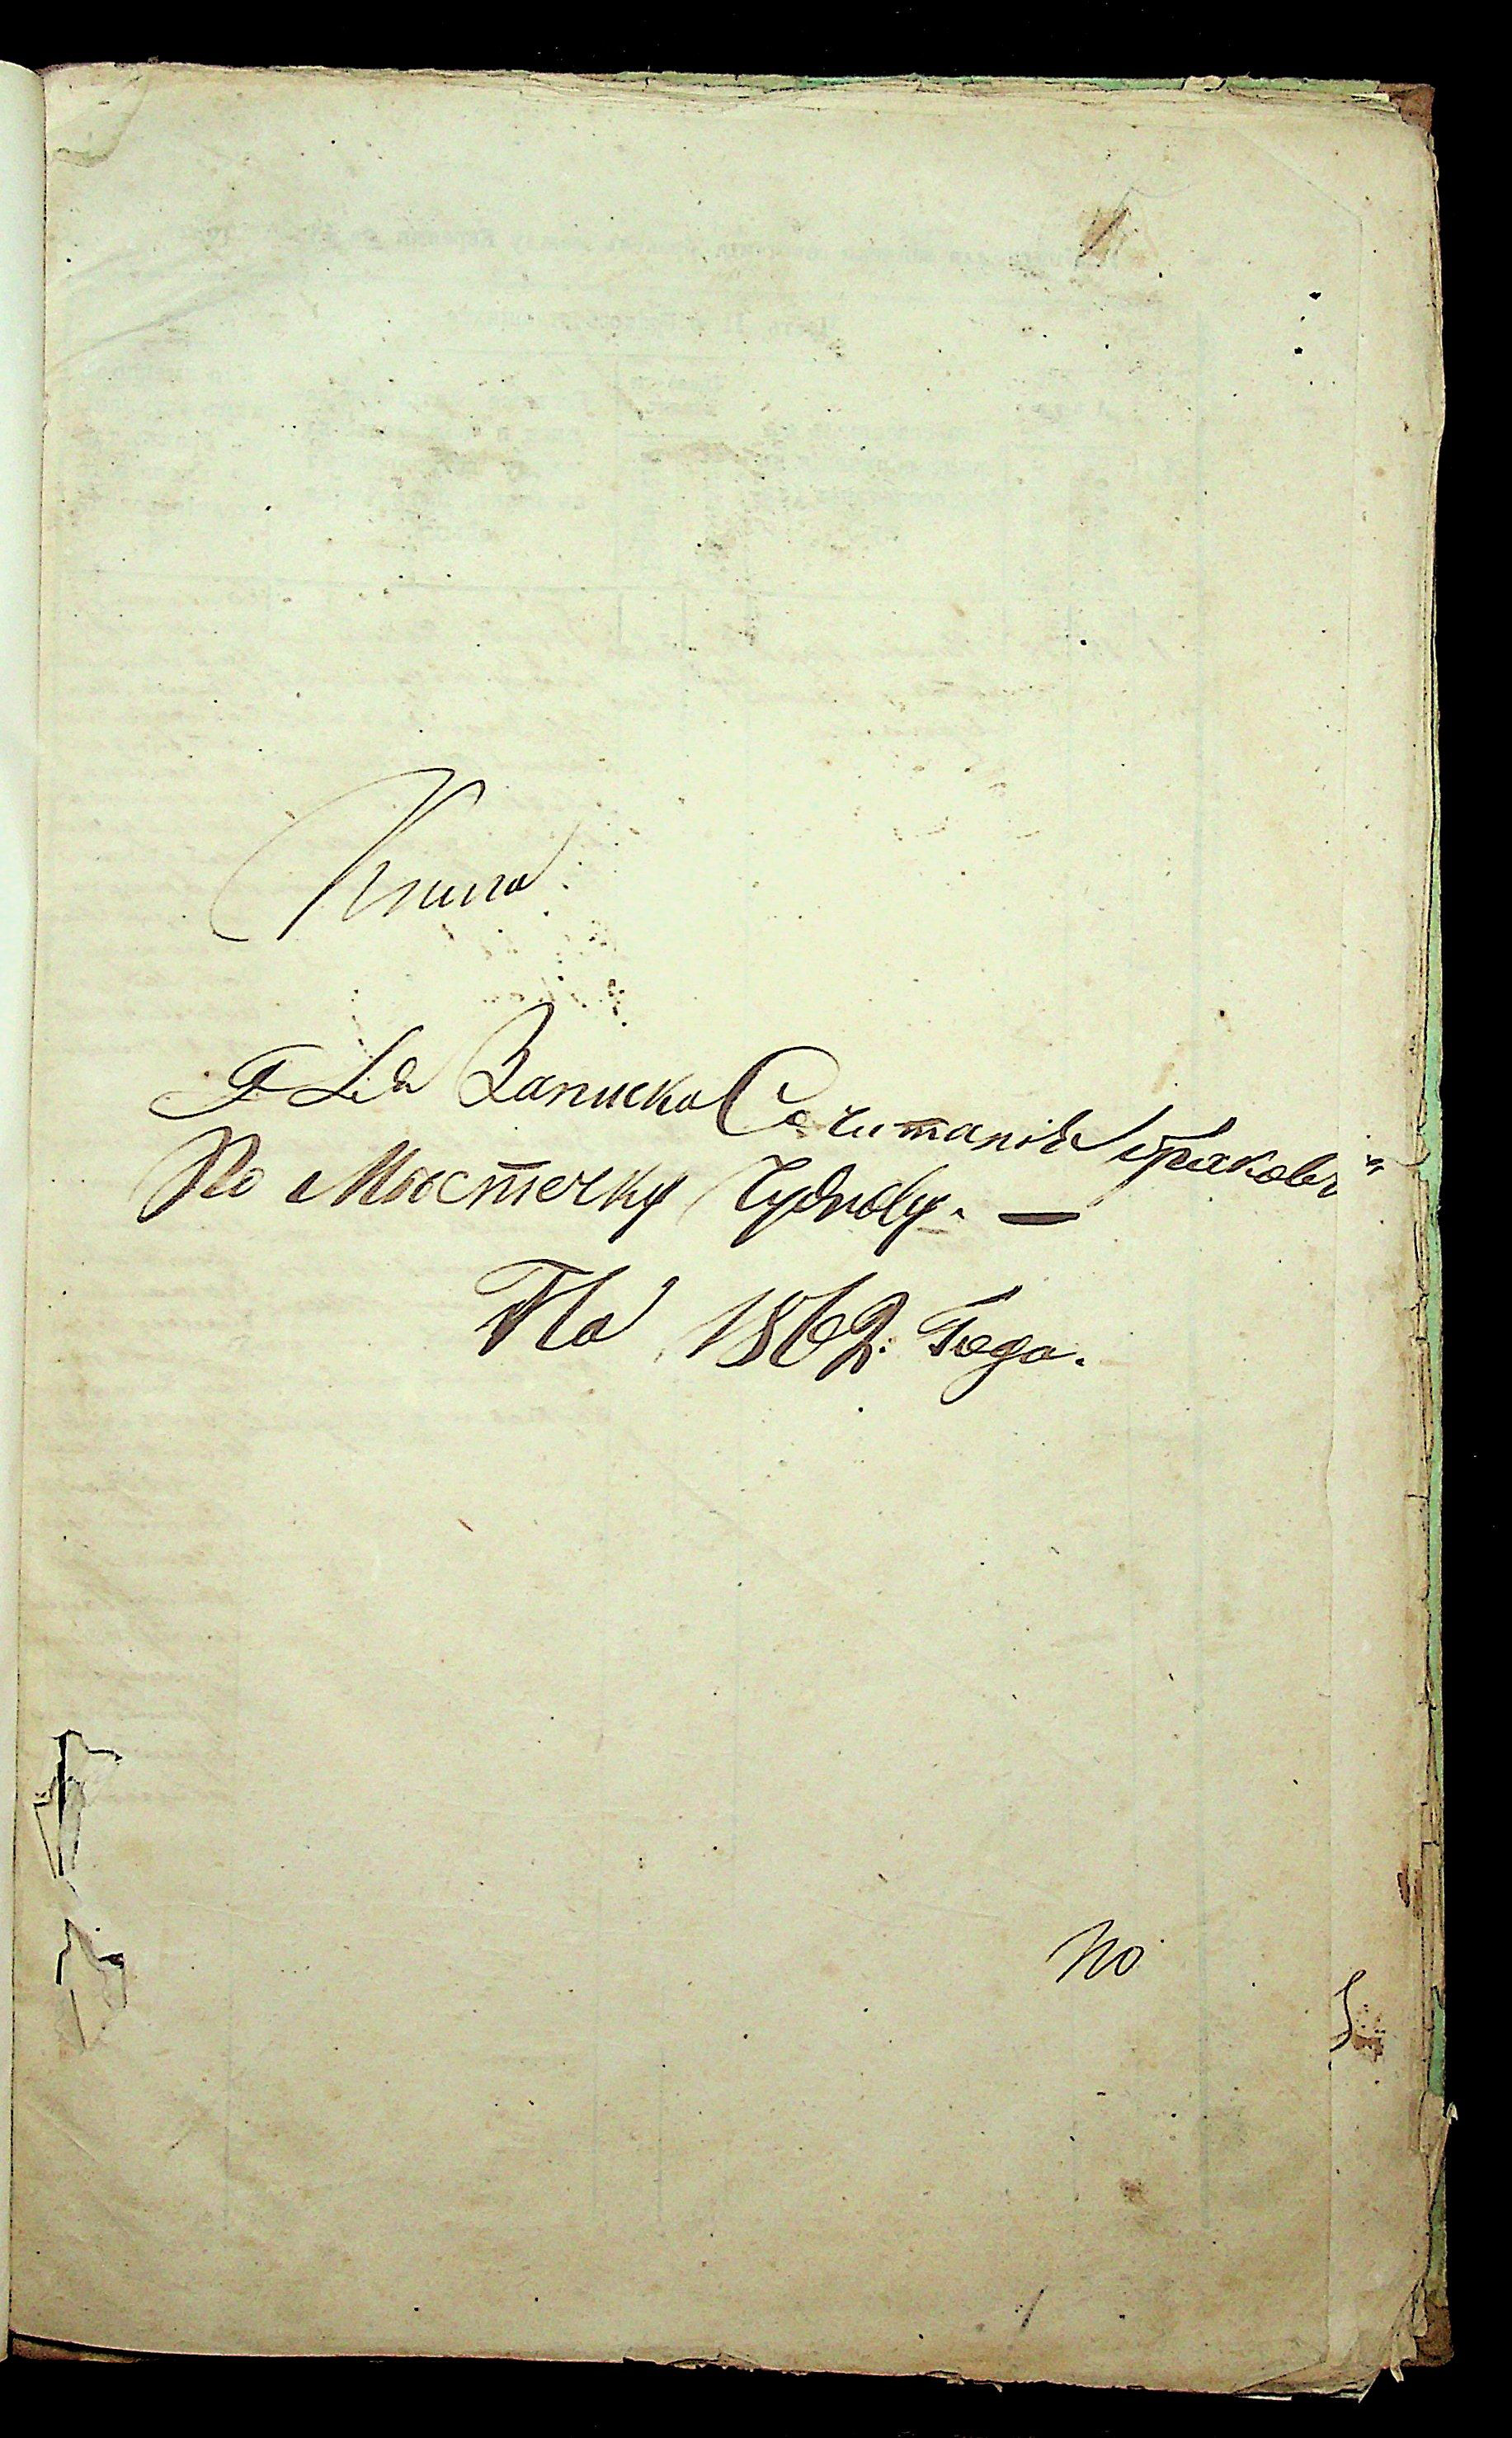 Книга
Для Записка Сачитаніе браковъ
По Мѣстечку Чуднову. —
На 1862. Года.
По